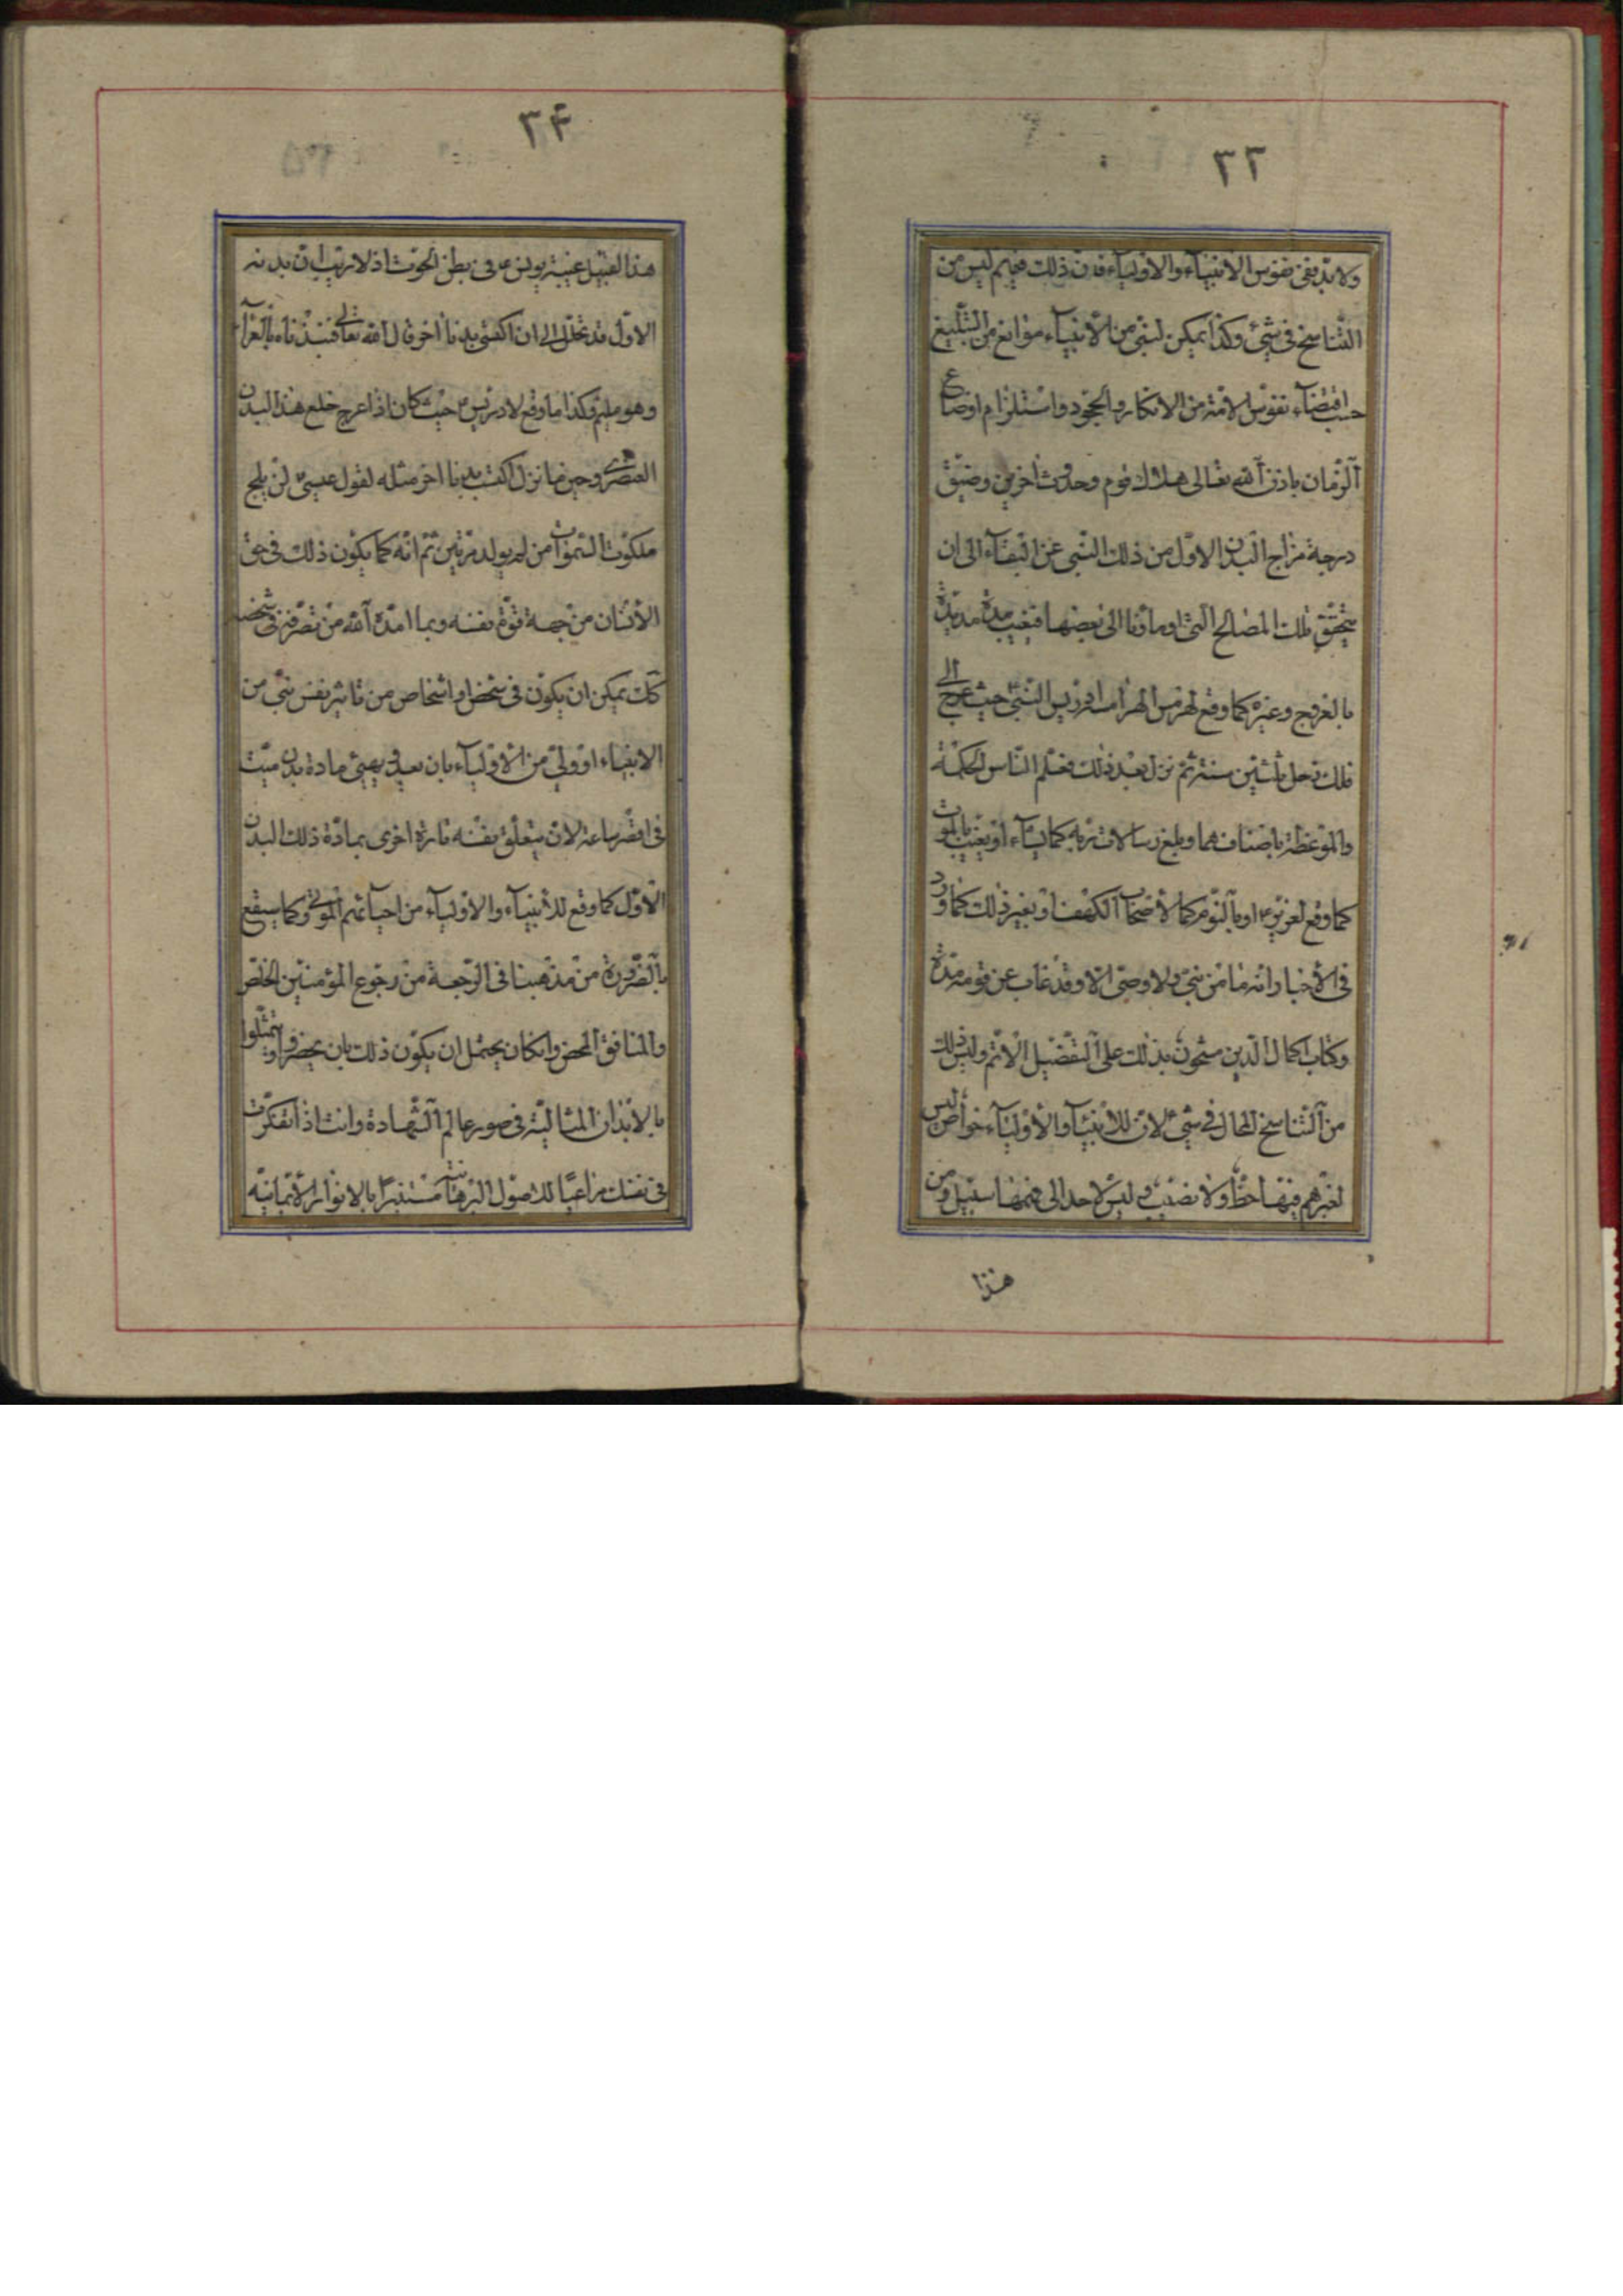 ٣٣
ولا بدّ فى نفوس الانبياء والاولياء فان ذلك فيهم ليس من
التّناسخ فى شىء وكذا يمكن لنبىّ من الانبياء موانع من التّبليغ
حسب اقتضاء نفوس الامّة من الانكار والجحود واستلزام اوضاع
الزّمان باذن الله تعالى هلاك قوم وحدوث آخرين وضيق
درجة مزاج البدن الاوّل من ذلك النّبى عن البقاء الى ان
يتحقّق تلك المصالح الّتى اومأنا الى بعضها فتغيب مدّة مديدة
بالعروج وغيره كما وقع لهرمس الهرامسة ادريس النّبىّ حيث عرج الى
فلك زحل ثلثين سنة ثمّ نزل بعد ذلك فعلّم النّاس الحكمة
والموعظة باصنافهما وبلغ رسالات ربّه كما يشاء او يغيب بالموت
كما وقع لعزير ع او بالنّوم كما لاصحاب الكهف او بغير ذلك كما ورد
فى الاخبار انه ما من نبىّ ولا وصىّ الّا وقد غاب عن قومه مدّة
وكتاب اكمال الدّين مشحون بذلك على التّفصيل الاتم وليس ذلك
من التّناسخ المحال فى شىء لانّ للانبياء والاولياء خواصّ ليس
لغيرهم فيها حظّ ولا نصيب وليس لاحد الى فهمها سبيل ومن
هذا
٣٤
هذا القبيل غيبة يونس ع فى بطن الحوت اذ لا ريب انّ بدنه
الاوّل قد تحلّل الى ان اكتسى بدنا آخر قال الله تعالى فنبذناه بالعرآء
وهو مليم وكذا ما وقع لادريس ع حيث كان اذا عرج خلع هذا البدن
العنصرى وحين ما نزل اكتسب بدنا آخر مثله لقول عيسى لن يلج
ملكوت السّموات من لم يولد مرّتين ثمّ انّه كما يكون ذلك فى حق
الانسان من جهة قوّة نفسه وبما امدّه الله من تصرّفه فى شخصه
كك يمكن ان يكون فى شخص او اشخاص من تاثير نفس نبىّ من
الانبياء او ولىّ من الاولياء بان يعد فى مادة بدن ميّت
فى اقصر ساعة لان يتعلّق نفسه تارة اخرى بمادّة ذلك البدن
الاوّل كما وقع للانبياء والاولياء من احيائهم الموتى وكما سيقع
بالضّرورة من مذهبنا فى الرّجعة من رجوع المؤمنين الخلّص
والمنافق المحض وان كان يحتمل ان يكون ذلك بان يحضروا ويتمثّلوا
بالابدان المثاليّة فى صور عالم الشّهادة وانت اذا تفكّرت
فى نفسك مراعيًا للاصول البرهانيّة مستنيرًا بالانوار الايمانيّه